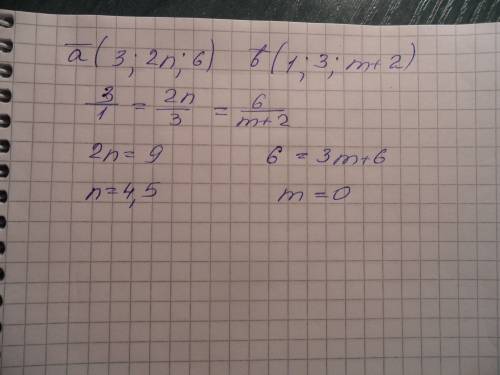 a̅(3; 2n; 6) b̅(1; 3; m+2)
3/1 = 2n/3 = 6/(m+2)
2n = 9 6 = 3m+6
n = 4,5 m = 0